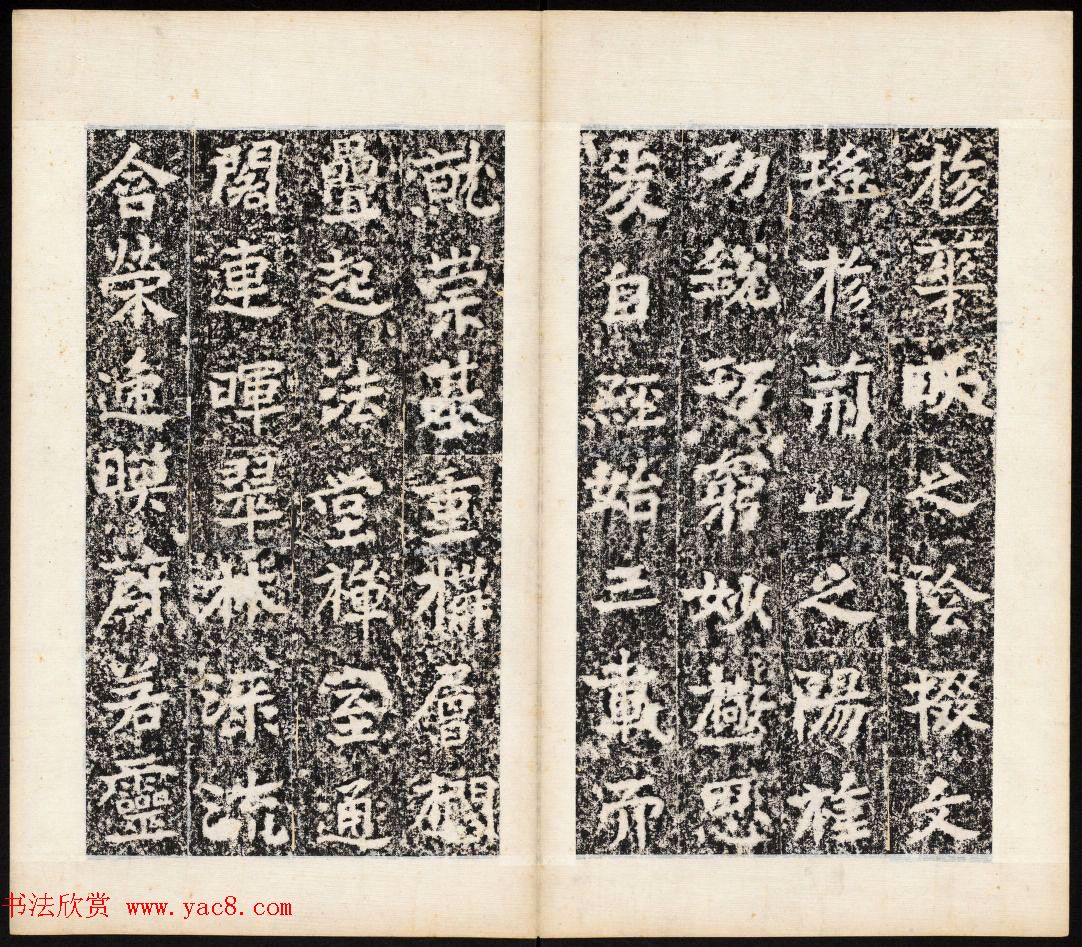 於華畎之陰掇文
瑤於荊山之陽旌
功銳巧窮妙極思
爰自經始三載而
就崇基重層
疊起法堂禪室通
閣連暉翠淋淥流
含榮遞暎蔚若靈
书法欣赏 www.yac8.com